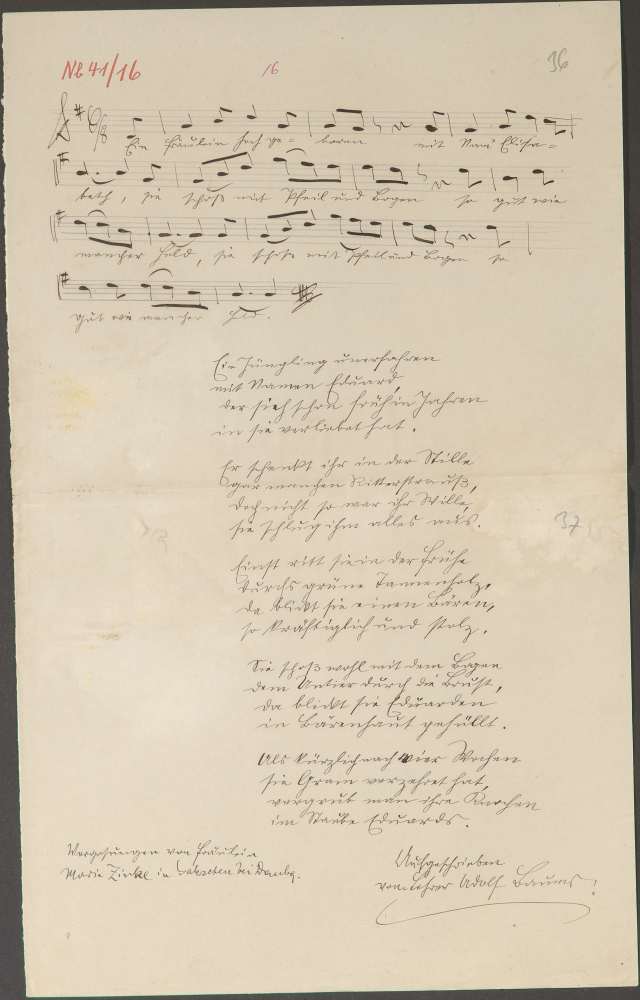 Nb 41/16
16
36
Ein Fräulein hoch ge= boren mit Nam' Elisa=
beth, sie schoß mit Pfeil und Bogen so gut wie
mancher Held, sie schoß mit Pfeil und Bogen so
gut wie mancher Held.
Ein Jüngling unerfahren
mit Namen Eduard,
der sich schon früh in Jahren
in sie verliebet hat.
Er schenkt ihr in der Stille
gar manchen Ritterstrauß,
doch nicht so war ihr Wille,
sie schlug ihm alles aus.
37
Einst ritt sie in der Frühe
durchs grüne Tannenholz,
da blickt sie einen Bären,
so kräftiglich und stolz.
Sie schoß wohl mit dem Bogen
dem Untier durch die Brust,
da blickt sie Eduarden
in Bärenhaut gehüllt.
Als kürzlich nach vier Wochen
sie Gram verzehret hat,
vergrub man ihre Knochen
im Staube Eduards.
Vorgesungen von Fräulein
Marie Zinke in bei
Aufgeschrieben
vom Lehrer Adolf